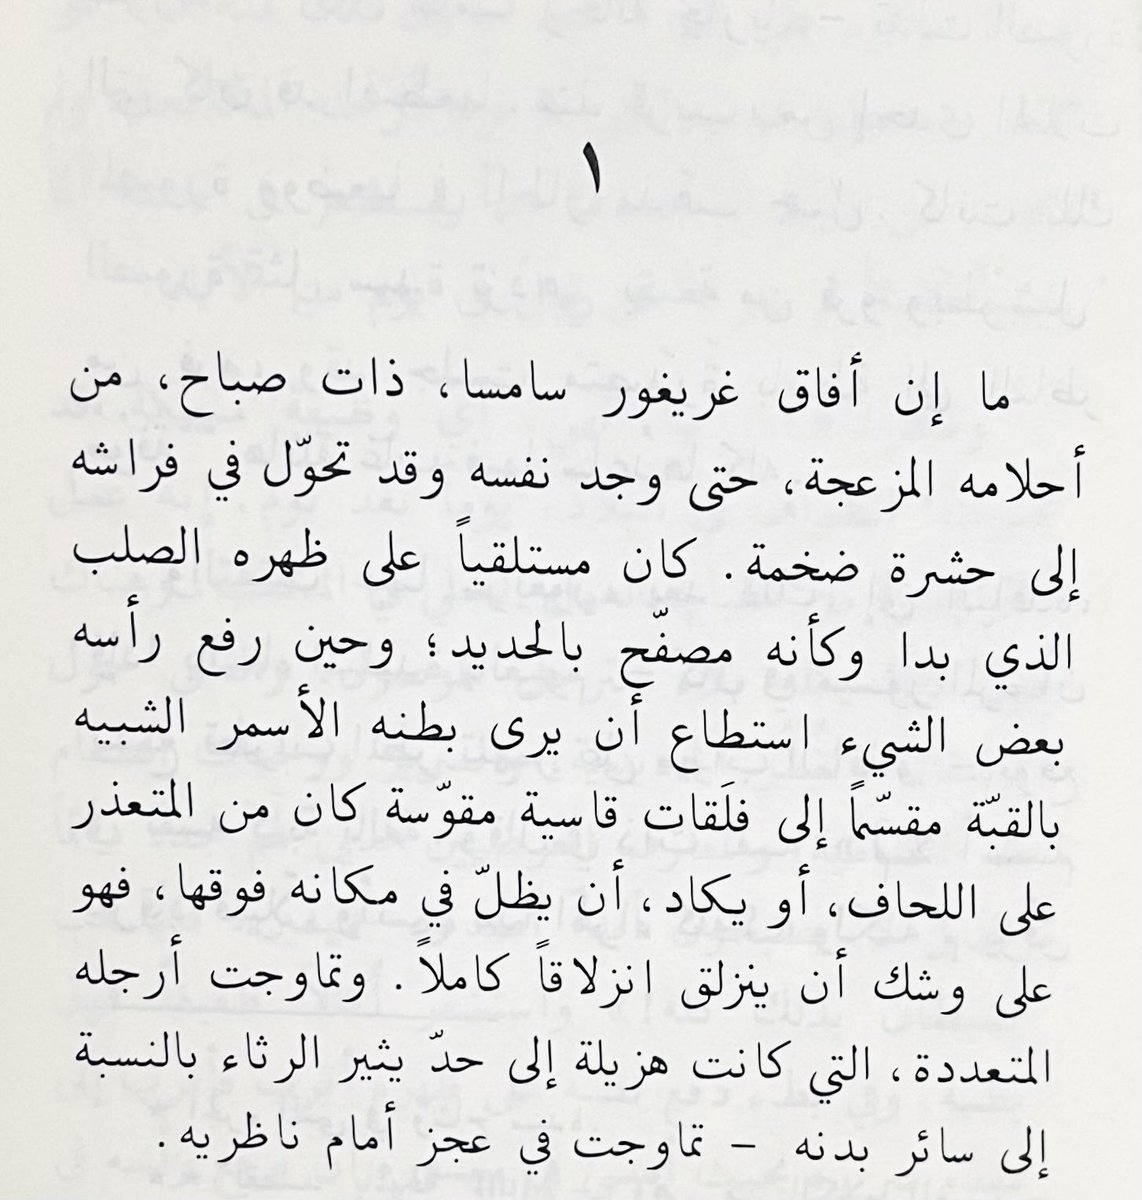 ١
ما إن أفاق غريغور سامسا، ذات صباح، من
أحلامه المزعجة، حتى وجد نفسه وقد تحوّل في فراشه
إلى حشرة ضخمة. كان مستلقياً على ظهره الصلب
الذي بدا وكأنه مصفّح بالحديد؛ وحين رفع رأسه
بعض الشيء استطاع أن يرى بطنه الأسمر الشبيه
بالقبّة مقسّماً إلى فلَقات قاسية مقوّسة كان من المتعذر
على اللحاف، أو يكاد، أن يظلّ في مكانه فوقها، فهو
على وشك أن ينزلق انزلاقاً كاملاً. وتماوجت أرجله
المتعددة، التي كانت هزيلة إلى حدّ يثير الرثاء بالنسبة
إلى سائر بدنه – تماوجت في عجز أمام ناظريه.